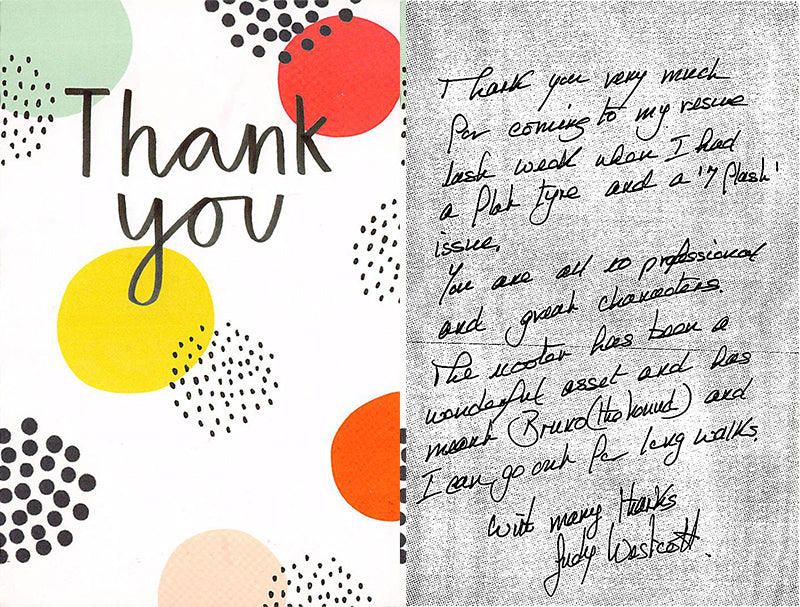 Thank
you
Thank you very much
for coming to my rescue
last week when I had
a flat tyre and a '7 flash'
issue.
You are all so professional
and great characters.
The scooter has been a
wonderful asset and has
meant Bruno (the hound) and
I can go out for long walks.
With many thanks
Judy Westcott.